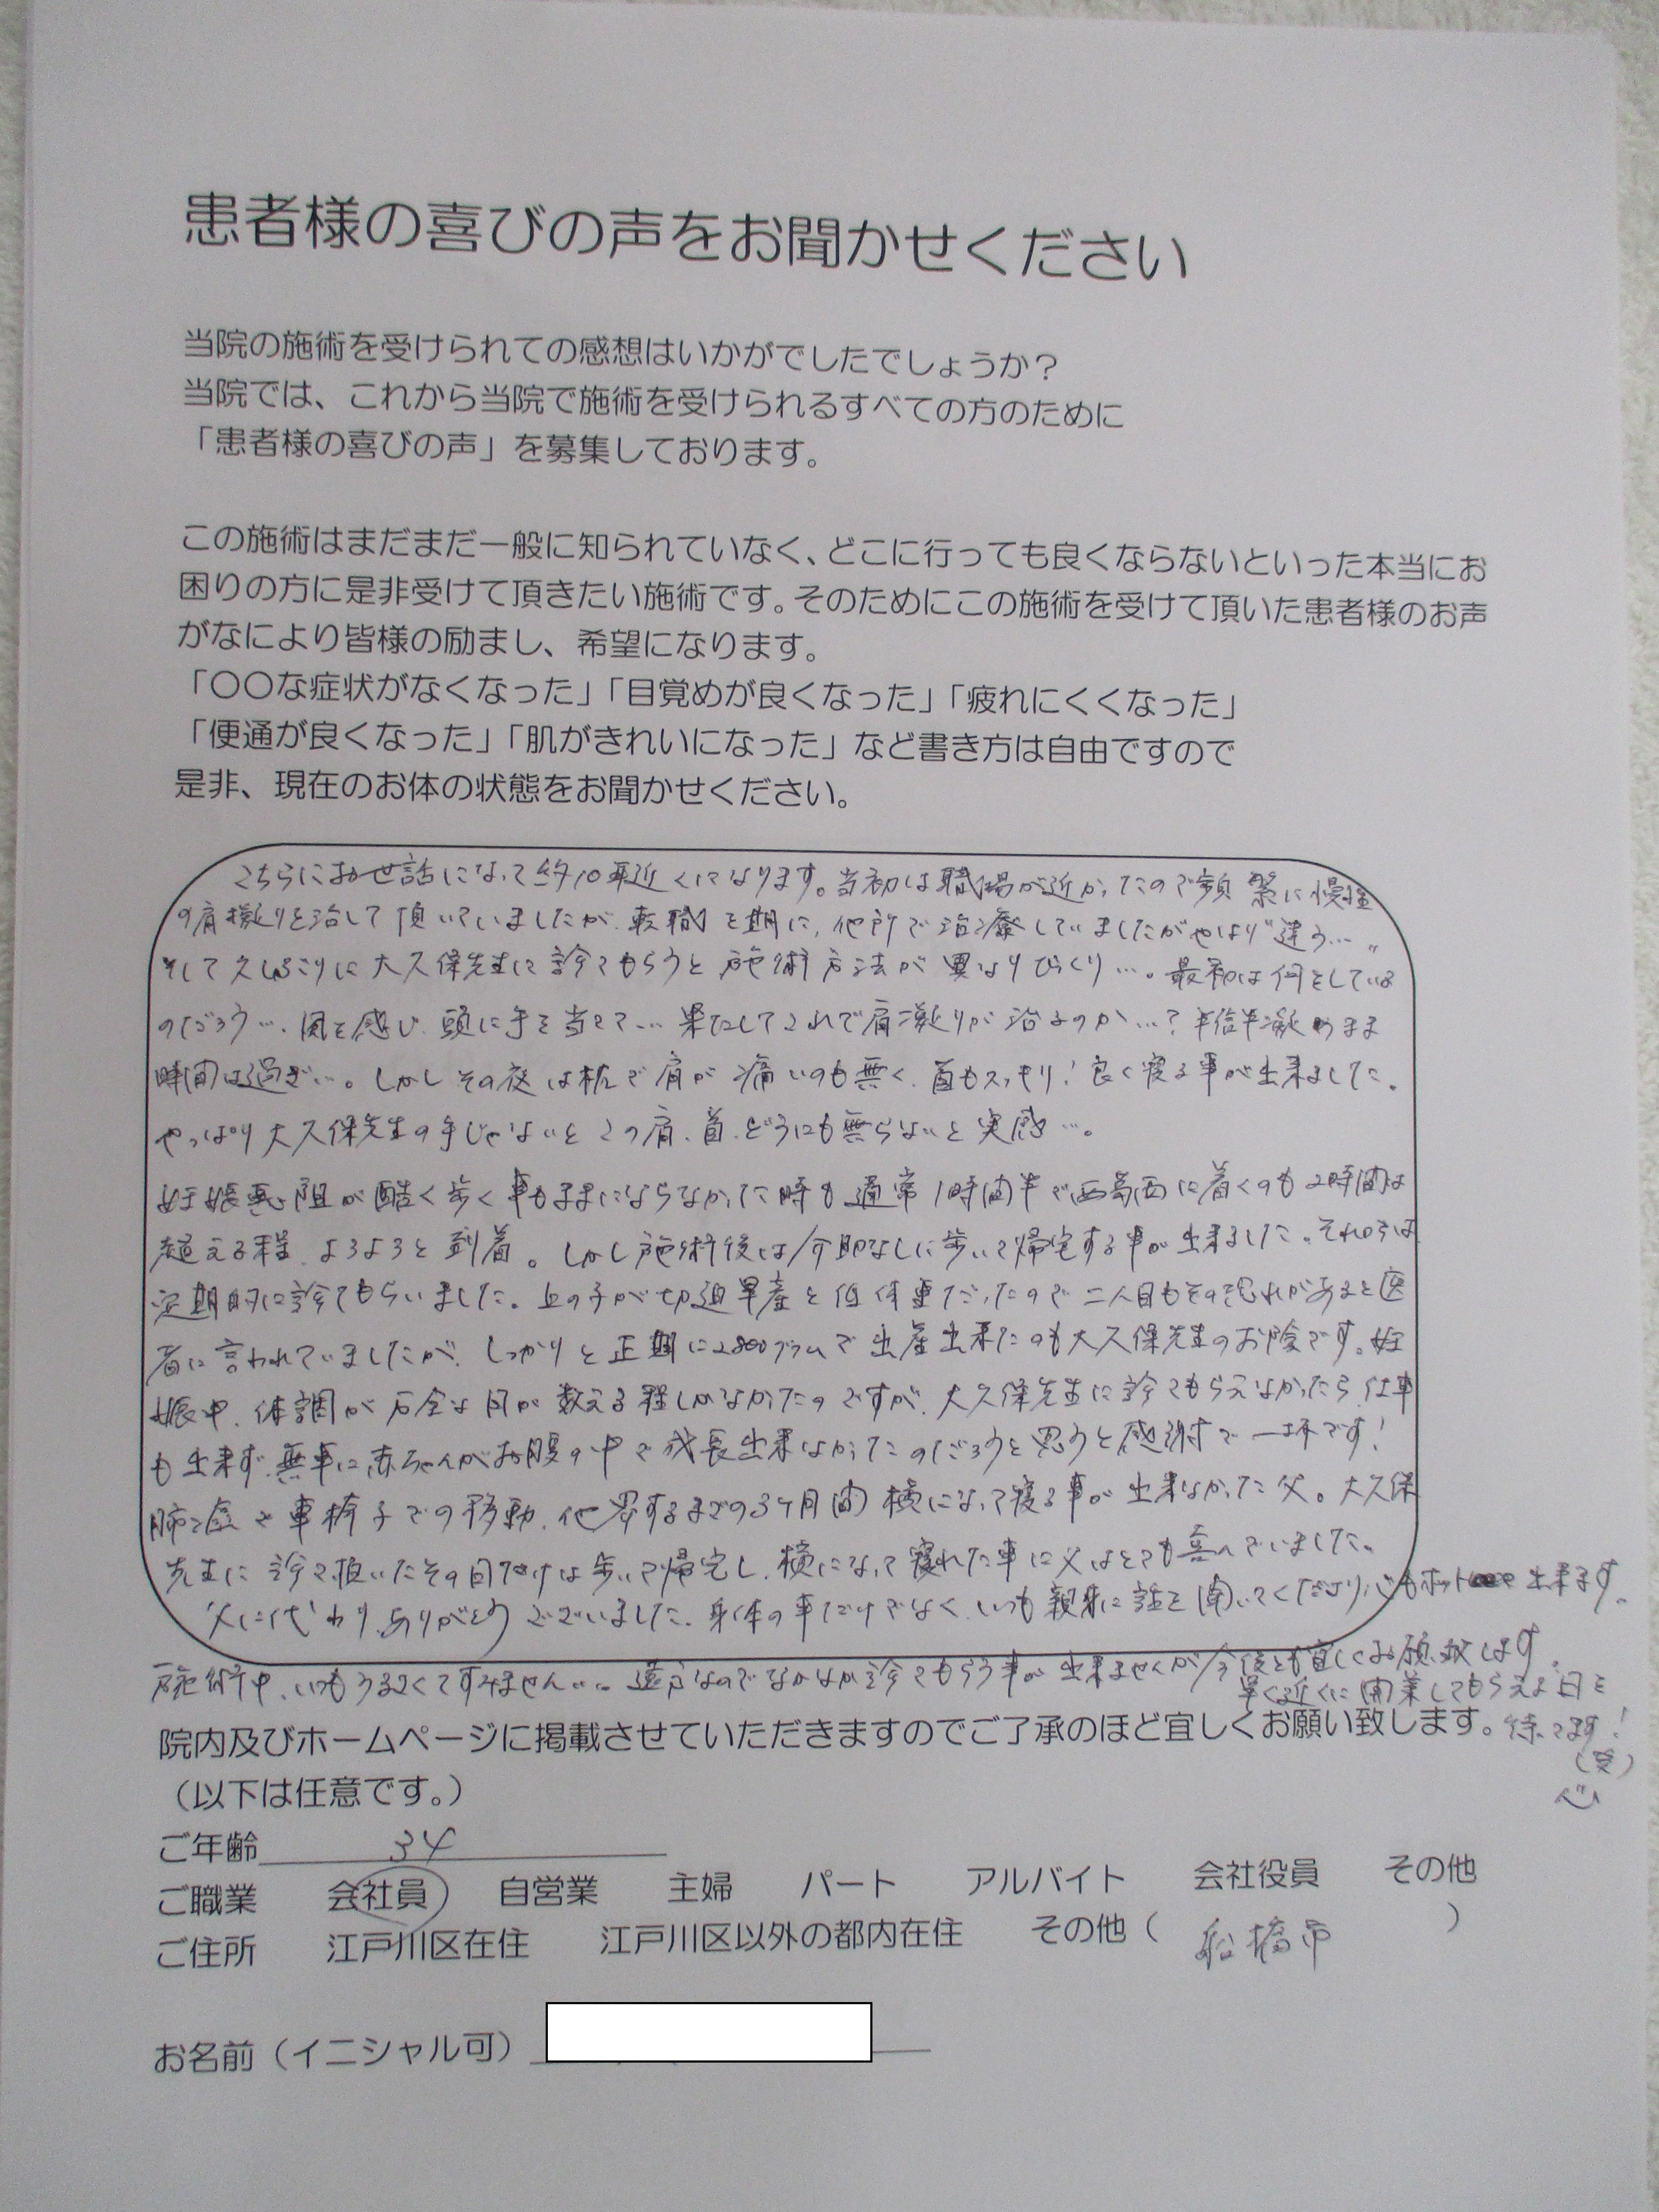 患者様の喜びの声をお聞かせください
当院の施術を受けられての感想はいかがでしたでしょうか？
当院では、これから当院で施術を受けられるすべての方のために
「患者様の喜びの声」を募集しております。
この施術はまだまだ一般に知られていなく、どこに行っても良くならないといった本当にお
困りの方に是非受けて頂きたい施術です。そのためにこの施術を受けて頂いた患者様のお声
がなにより皆様の励まし、希望になります。
「〇〇な症状がなくなった」「目覚めが良くなった」「疲れにくくなった」
「便通が良くなった」「肌がきれいになった」など書き方は自由ですので
是非、現在のお体の状態をお聞かせください。
こちらにお世話になって約10年近くになります。当初は職場が近かったので頻繁に慢性
の肩凝りを治して頂いていましたが、転職を期に、他所で治療していましたがやはり"違う…"
そして久しぶりに大久保先生に診てもらうと施術方法が異なりびっくり…。最初は何をしている
のだろう…、風を感じ、頭に手を当てて…果たしてこれで肩凝りが治るのか…？半信半疑のまま
時間は過ぎ…。しかしその夜は枕で肩が痛いのも無く、首もスッキリ！良く寝る事が出来ました。
やっぱり大久保先生の手じゃないとこの肩、首、どうにも無らないと実感…。
妊娠悪阻が酷く歩く事もままにならなかった時も通常1時間半で西葛西に着くのも2時間は
超える程、よろよろと到着。しかし施術後は介助なしに歩いて帰宅する事が出来ました。それからは
定期的に診てもらいました。上の子が切迫早産と低体重だったので二人目もその恐れがあると医
者に言われていましたが、しっかりと正期に2800グラムで出産出来たのも大久保先生のお陰です。妊
娠中、体調が万全な日が数える程しかなかったのですが、大久保先生に診てもらえなかったら、仕事
も出来ず、無事に赤ちゃんがお腹の中で成長出来なかったのだろうと思うと感謝で一杯です！
肺癌で車椅子での移動、他界するまでの3ヶ月間横になって寝る事が出来なかった父。大久保
先生に診て頂いたその日だけは歩いて帰宅し、横になって寝れた事に父はとても喜んでいました。
父に代わり、ありがとうございました。身体の事だけでなく、いつも親身に話を聞いてくださり、心もホット出来ます。
施術中、いつもうるさくてすみません…。遠方なのでなかなか診てもらう事が出来ませんが今後とも宜しくお願い致します。
早く近くに開業してもらえる日を
待ってます！
（笑）
院内及びホームページに掲載させていただきますのでご了承のほど宜しくお願い致します。
（以下は任意です。）
ご年齢 34
ご職業 会社員 自営業 主婦 パート アルバイト 会社役員 その他
ご住所 江戸川区在住 江戸川区以外の都内在住 その他（ 船橋市 ）
お名前（イニシャル可）